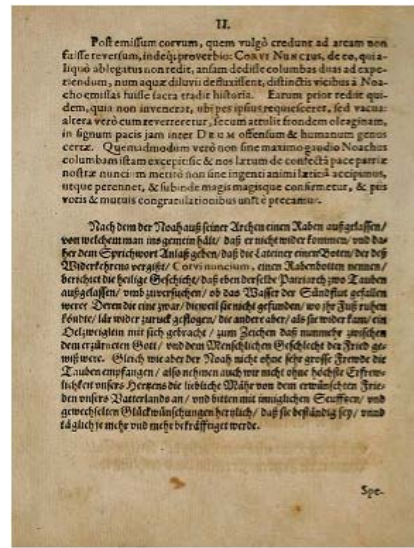 II.
Post emissum corvum, quem vulgò credunt ad arcam non
fuisse reversum, indeq; proverbio: CORVI NUNCIUS, de eo, qui a-
liquò ablegatus non redit, ansam dedisse columbas duas ad expe-
riendum, num aquæ diluvii defluxissent, distinctis vicibus à Noa-
cho emissas fuisse sacra tradit historia. Earum prior rediit qui-
dem, quia non invenerat, ubi pes ipsius requiesceret, sed vacua:
altera verò cum reverteretur, secum attulit frondem oleaginam,
in signum pacis jam inter DEUM offensum & humanum genus
certæ. Quemadmodum verò non sine maximo gaudio Noachus
columbam istam excepit: sic & nos lætum de confectâ pace patriæ
nostræ nuncium meritò non sine ingenti animi lætitiâ accipimus,
utque perennet, & subinde magis magisque confirmetur, & piis
votis & mutuis congratulationibus precamur.
Nach dem der Noah auß seiner Archen einen Raben außgelassen/
von welchem man ins gemein hält/ daß er nicht wider kommen/ und da-
her dem Sprichwort Anlaß geben/ daß die Lateiner einen Boten/ der deß
Widerkehrens vergißt/ Corvi nuncium, einen Rabenbotten nennen/
berichtet die heilige Geschicht/ daß eben derselbe Patriarch zwo Tauben
außgelassen/ umb zuversuchen/ ob das Wasser der Sündflut gefallen
were: Deren die eine zwar/ weil sie nicht gefunden/ wo ihr Fuß ruhen
köndte/ lär wider zurück geflogen/ die andere aber/ als sie wider kam/ ein
Oelzweiglein mit sich gebracht/ zum Zeichen daß nunmehr zwischen
dem erzürneten Gott/ und dem Menschlichen Geschlecht der Fried ge-
wiß were. Gleich wie aber der Noah nicht ohne sehr grosse Frewde die
Tauben empfangen/ also nehmen auch wir nicht ohne höchste Erfrew-
lichkeit unsers Hertzens die liebliche Mähr von dem erwünschten Frie-
den unsers Vatterlands an/ und bitten mit inniglichen Seufftzen/ und
gewechselten Glückwünschungen hertzlich/ daß sie beständig sey/ unnd
täglich je mehr und mehr bekräfftiget werde.
Spe-